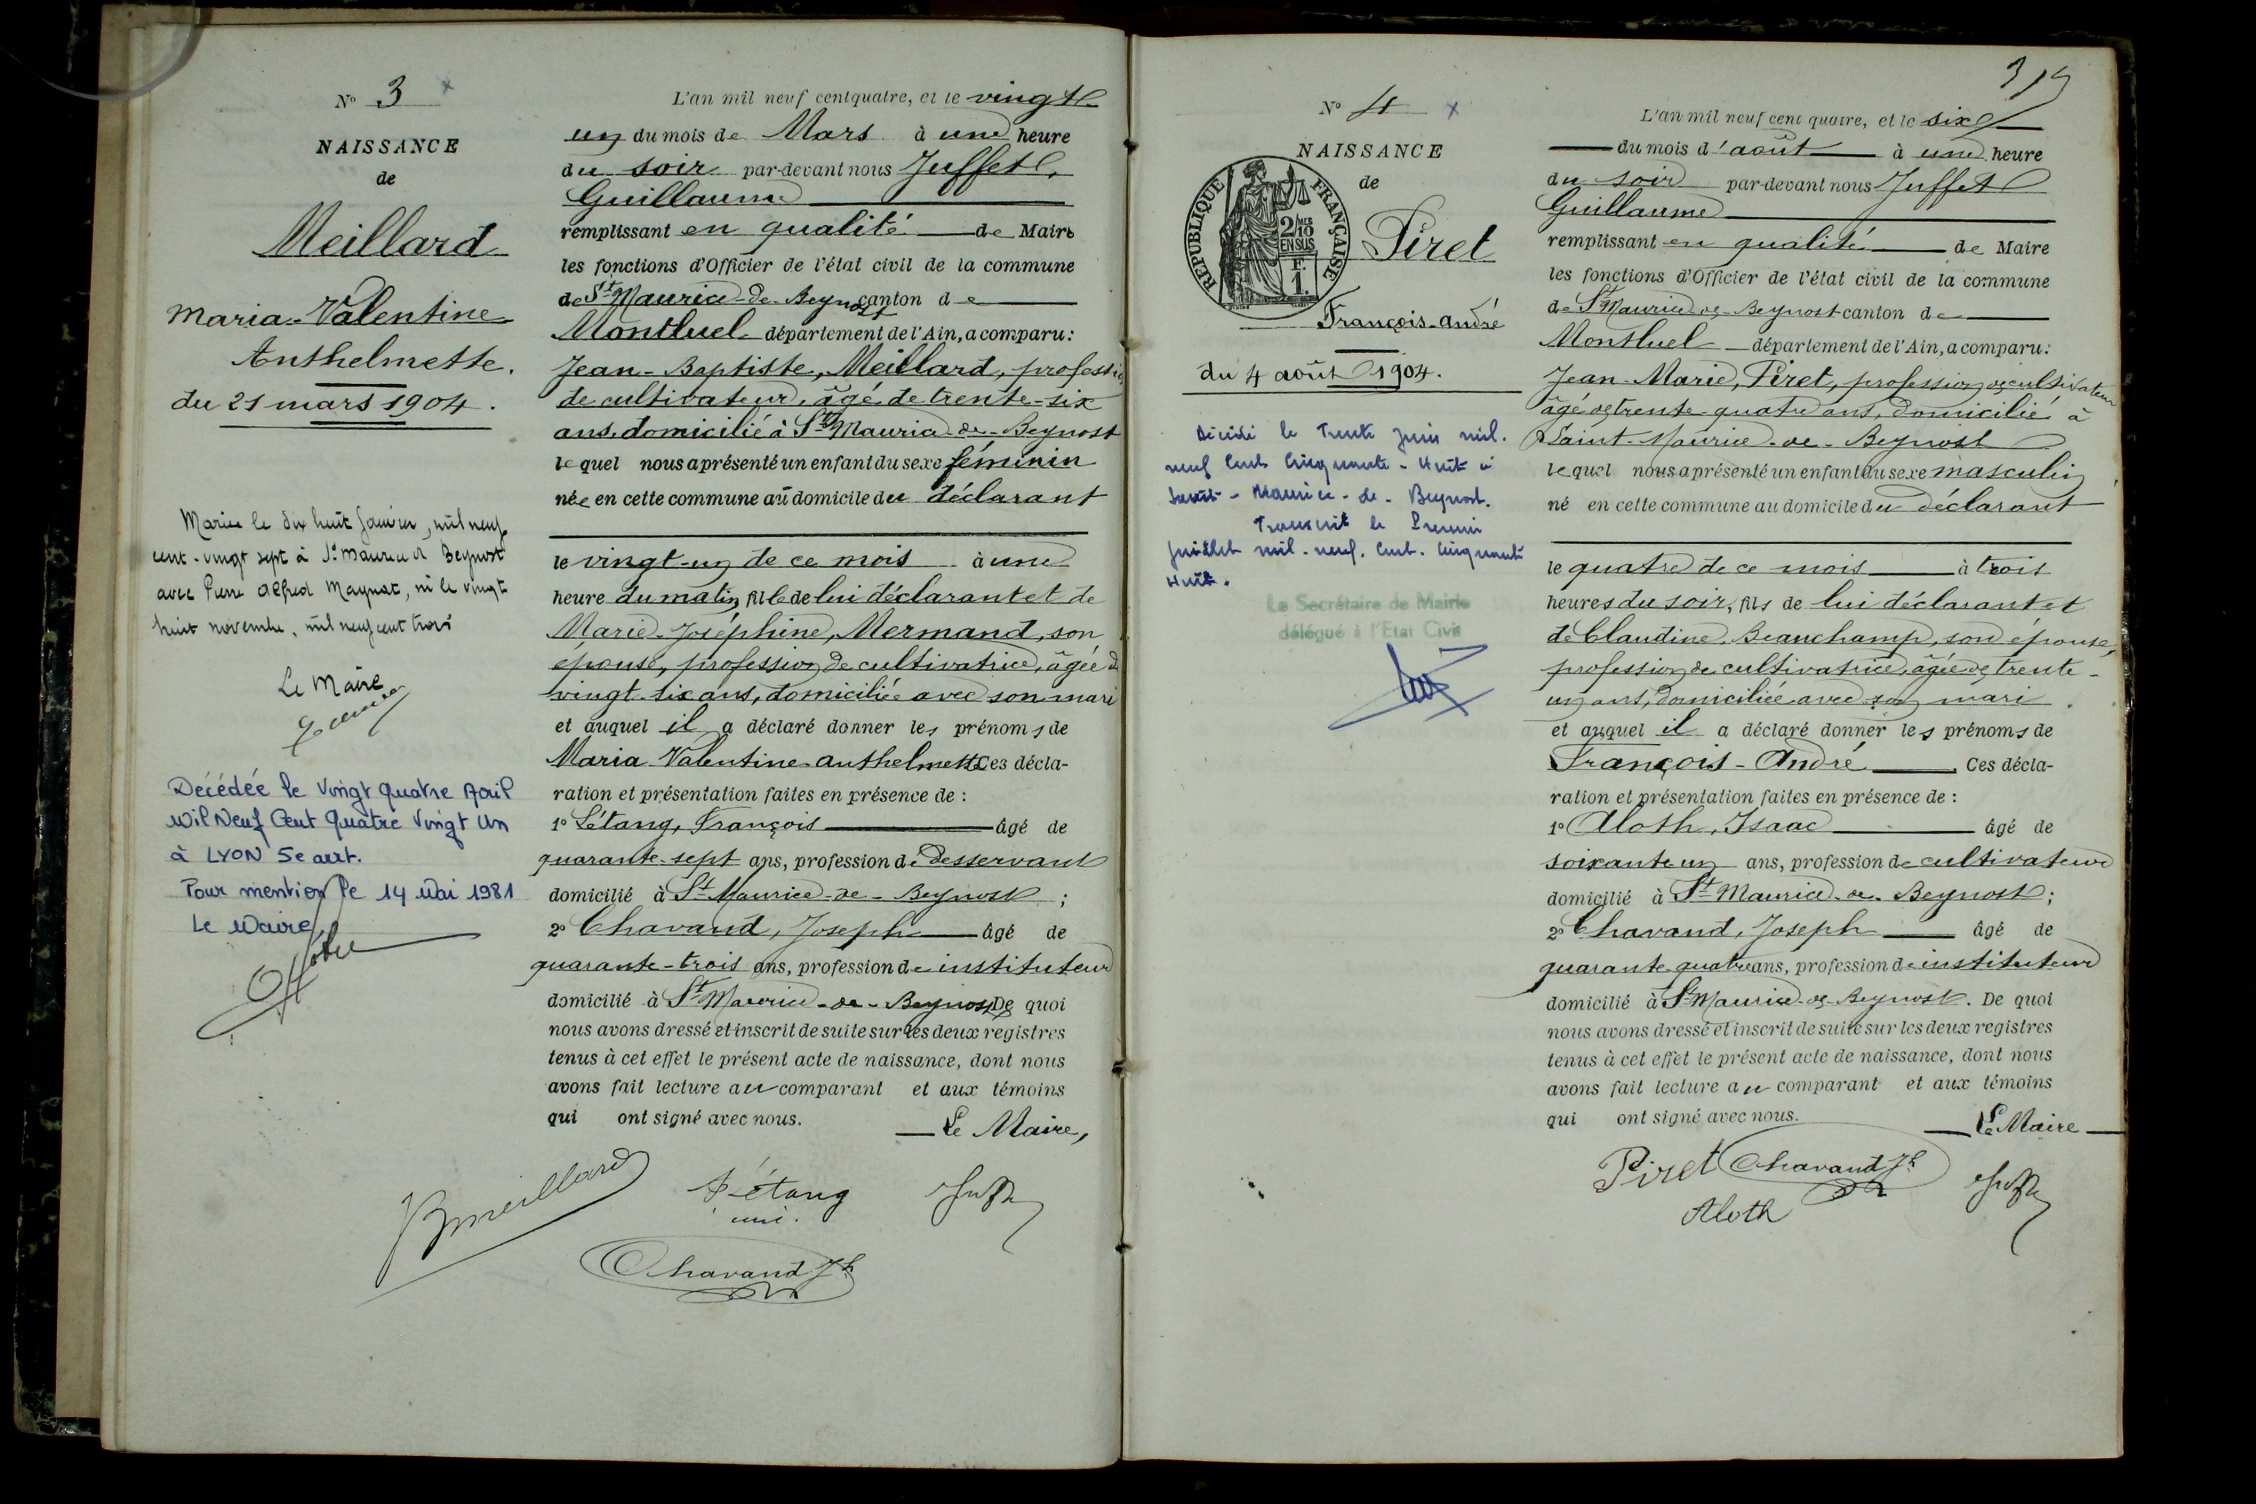 N° 3
NAISSANCE
de
Meillard
Maria-Valentine
Anthelmette.
du 21 mars 1904.
Mariée le dix huit janvier, mil neuf
cent-vingt sept à St Maurice de Beynost
avec Pierre Alfred Maynat, né le vingt
huit novembre, mil neuf cent trois
Le Maire
Décédée le Vingt Quatre Avril
Mil Neuf Cent Quatre Vingt Un
à LYON 5e arrt.
Pour mention le 14 Mai 1981
Le Maire
L'an mil neuf cent quatre, et le vingt
un du mois de Mars à une heure
du soir par-devant nous Juffet,
Guillaume
remplissant en qualité de Maire
les fonctions d'Officier de l'état civil de la commune
de St Maurice-de-Beynost canton de
Montluel département de l'Ain, a comparu:
Jean-Baptiste, Meillard, profession
de cultivateur, âgé de trente-six
ans, domicilié à St Maurice-de-Beynost
lequel nous a présenté un enfant du sexe féminin
née en cette commune au domicile du déclarant
le vingt-un de ce mois à une
heure du matin, fille de lui déclarant et de
Marie-Joséphine, Mermand, son
épouse, profession de cultivatrice, âgée de
vingt-six ans, domiciliée avec son mari
et auquel il a déclaré donner les prénoms de
Maria-Valentine-Anthelmette Ces décla-
ration et présentation faites en présence de :
1° Létang, François âgé de
quarante-sept ans, profession de Desservant
domicilié à St Maurice-de-Beynost ;
2° Chavand, Joseph âgé de
quarante-trois ans, profession de instituteur
domicilié à St Maurice-de-Beynost De quoi
nous avons dressé et inscrit de suite sur les deux registres
tenus à cet effet le présent acte de naissance, dont nous
avons fait lecture au comparant et aux témoins
qui ont signé avec nous.
Le Maire,
JB Meillard
Létang
Juffet
Chavand Jh
N° 4
NAISSANCE
de
RÉPUBLIQUE FRANÇAISE
2/10 MES
EN SUS
F.
1.
Piret
François-André
du 4 août 1904.
Décédé le Trente Juin mil.
neuf Cent Cinquante-Huit à
Saint-Maurice-de-Beynost.
Transcrit le Premier
Juillet mil.neuf.Cent.Cinquante
Huit.
Le Secrétaire de Mairie
délégué à l'Etat Civil
319
L'an mil neuf cent quatre, et le six
du mois d'août à une heure
du soir par-devant nous Juffet
Guillaume
remplissant en qualité de Maire
les fonctions d'Officier de l'état civil de la commune
de St Maurice-de-Beynost canton de
Montluel département de l'Ain, a comparu:
Jean-Marie, Piret, profession de cultivateur
âgé de trente-quatre ans, domicilié à
Saint-Maurice-de-Beynost
lequel nous a présenté un enfant du sexe masculin
né en cette commune au domicile du déclarant
le quatre de ce mois à trois
heures du soir, fils de lui déclarant et
de Claudine, Beauchamp, son épouse,
profession de cultivatrice, âgée de trente-
un ans, domiciliée avec son mari
et auquel il a déclaré donner les prénoms de
François-André Ces décla-
ration et présentation faites en présence de :
1° Aloth, Isaac âgé de
soixante un ans, profession de cultivateur
domicilié à St Maurice-de-Beynost ;
2° Chavand, Joseph âgé de
quarante quatre ans, profession de instituteur
domicilié à St Maurice-de-Beynost. De quoi
nous avons dressé et inscrit de suite sur les deux registres
tenus à cet effet le présent acte de naissance, dont nous
avons fait lecture au comparant et aux témoins
qui ont signé avec nous.
Le Maire
Piret
Chavand Jh
Juffet
Aloth